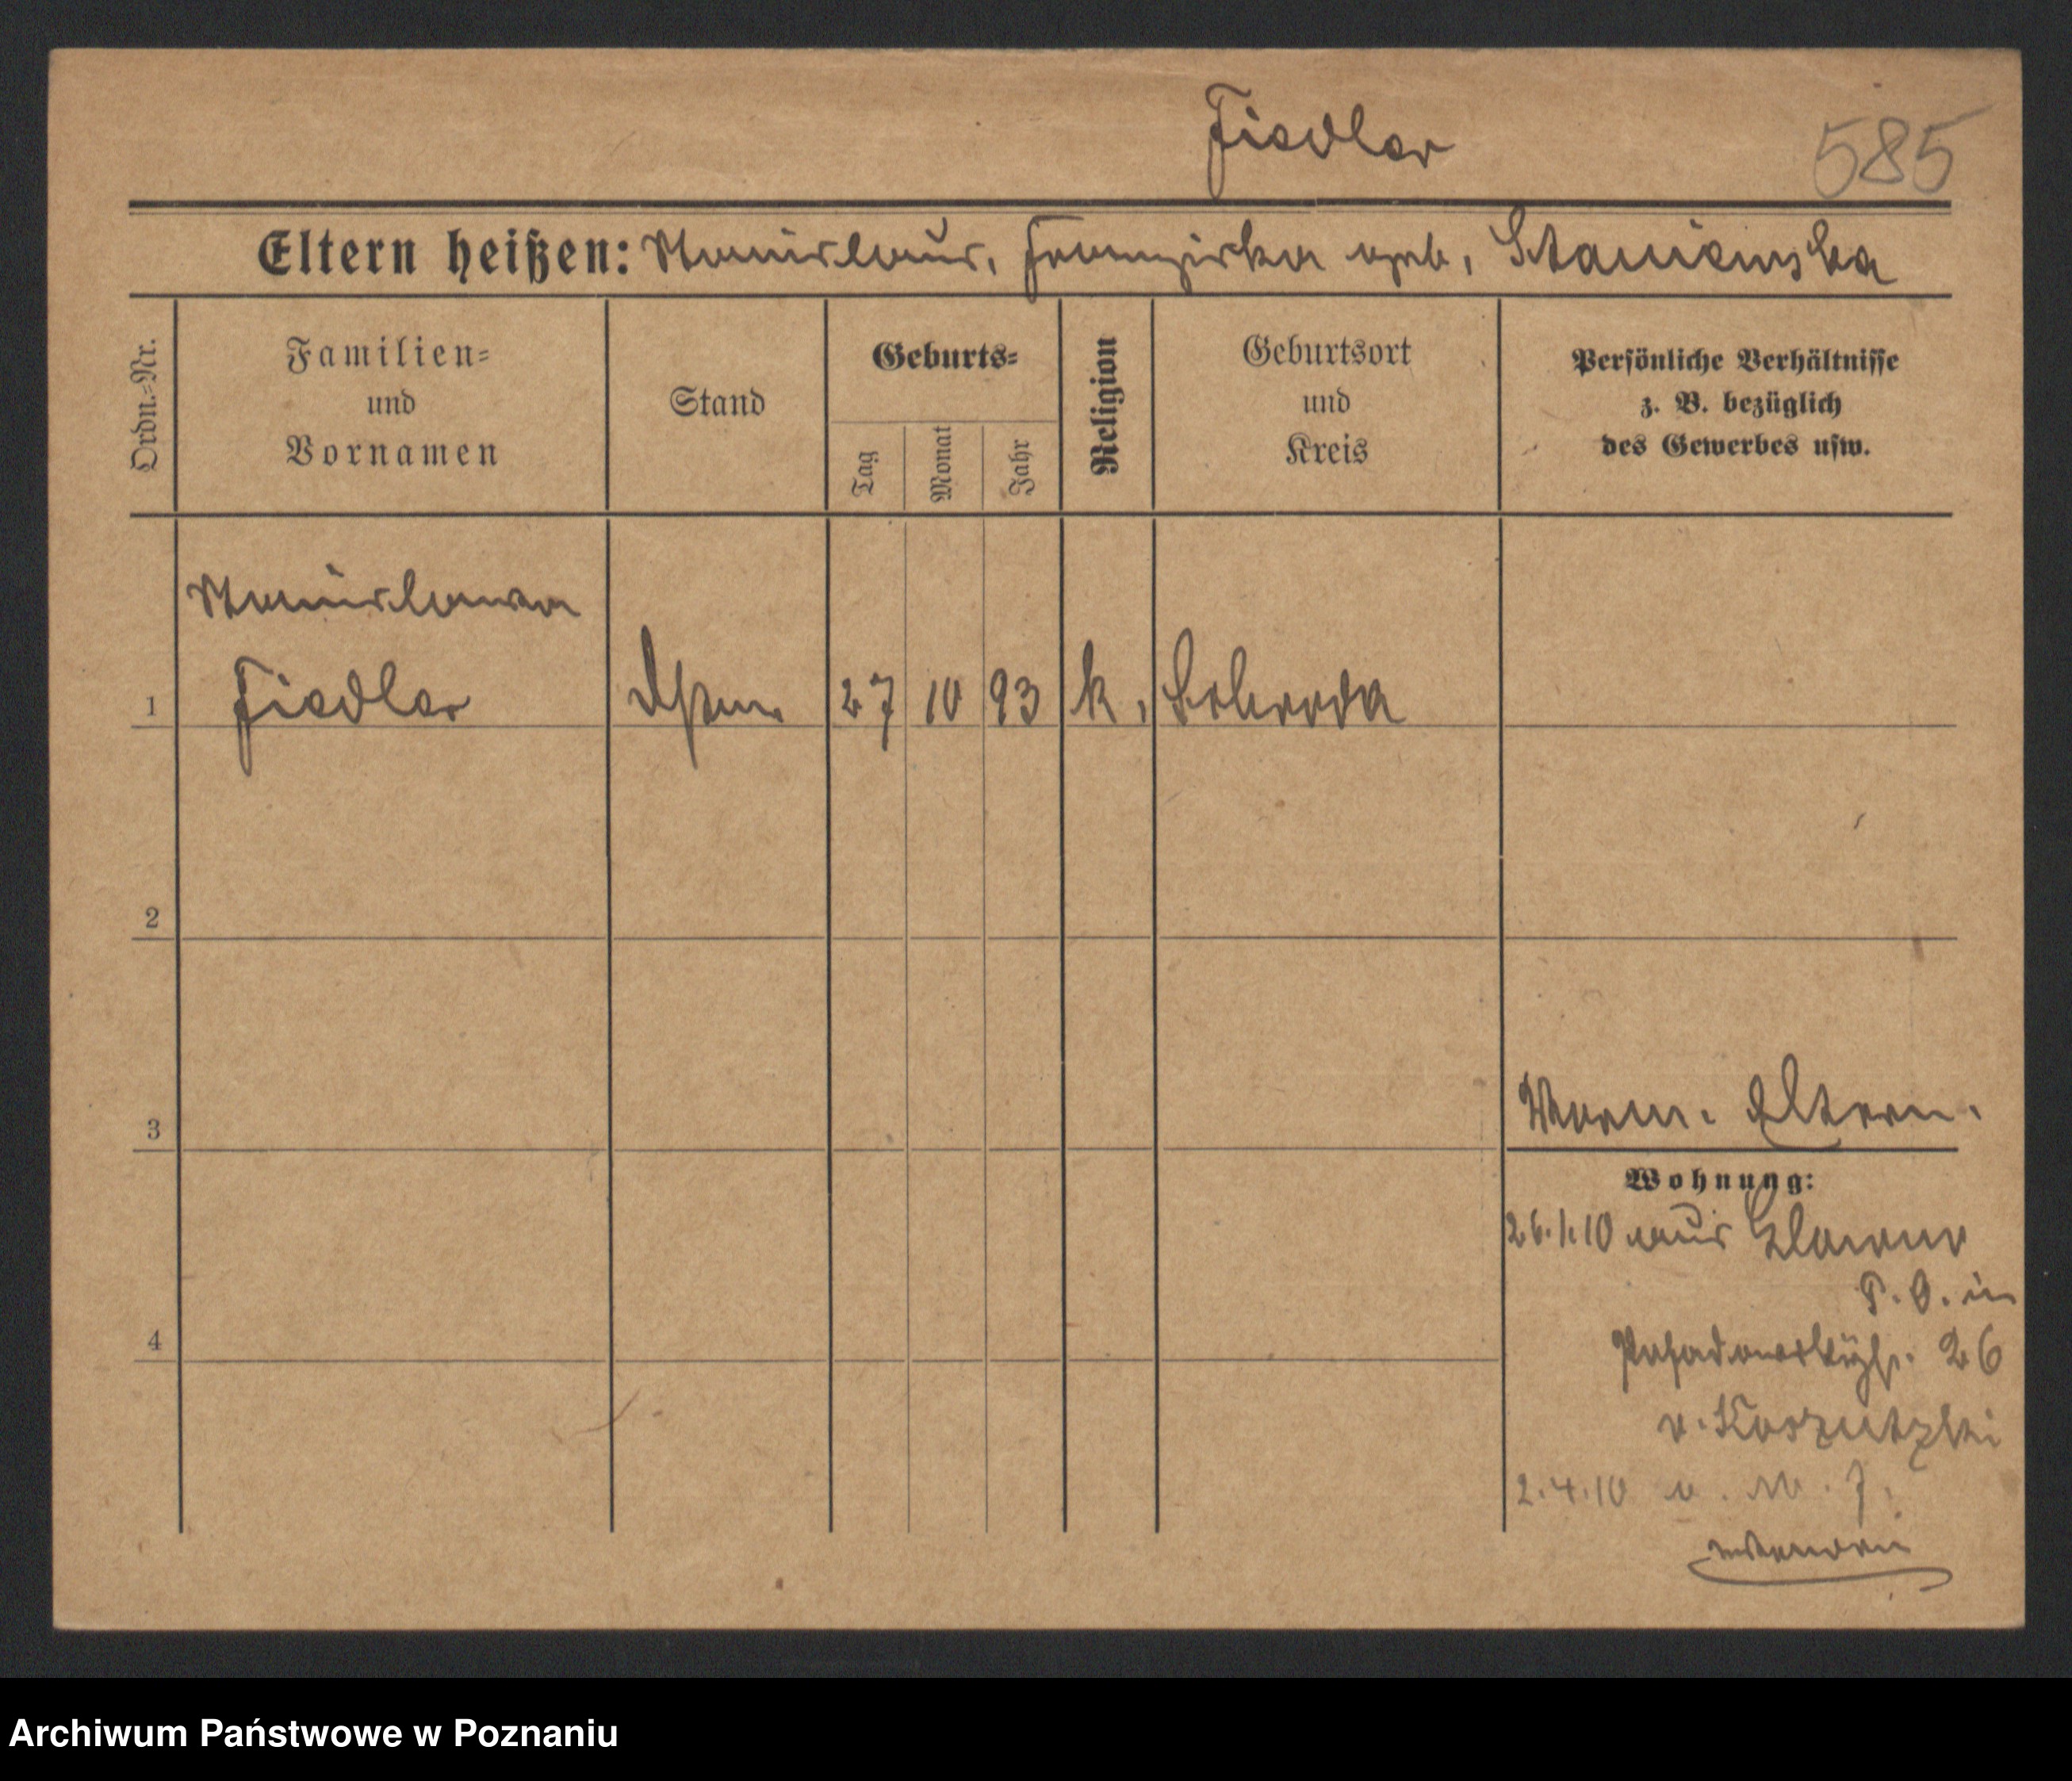 Fiedler
585
Eltern heißen: Stanislaus, Franziska geb. Staniewska
Ordn.-Nr.
Familien-
und
Vornamen
Stand
Geburts-
Tag
Monat
Jahr
Religion
Geburtsort
und
Kreis
Persönliche Verhältnisse
z. B. bezüglich
des Gewerbes usw.
Stanislawa
1 Fiedler 27 10 93 k. Schroda
2
3
Vorm. Eltern.
Wohnung:
26.1.10 aus
P. O. in
4
26
v. Koszutzki
2.4.10 u. M. J.
Archiwum Państwowe w Poznaniu